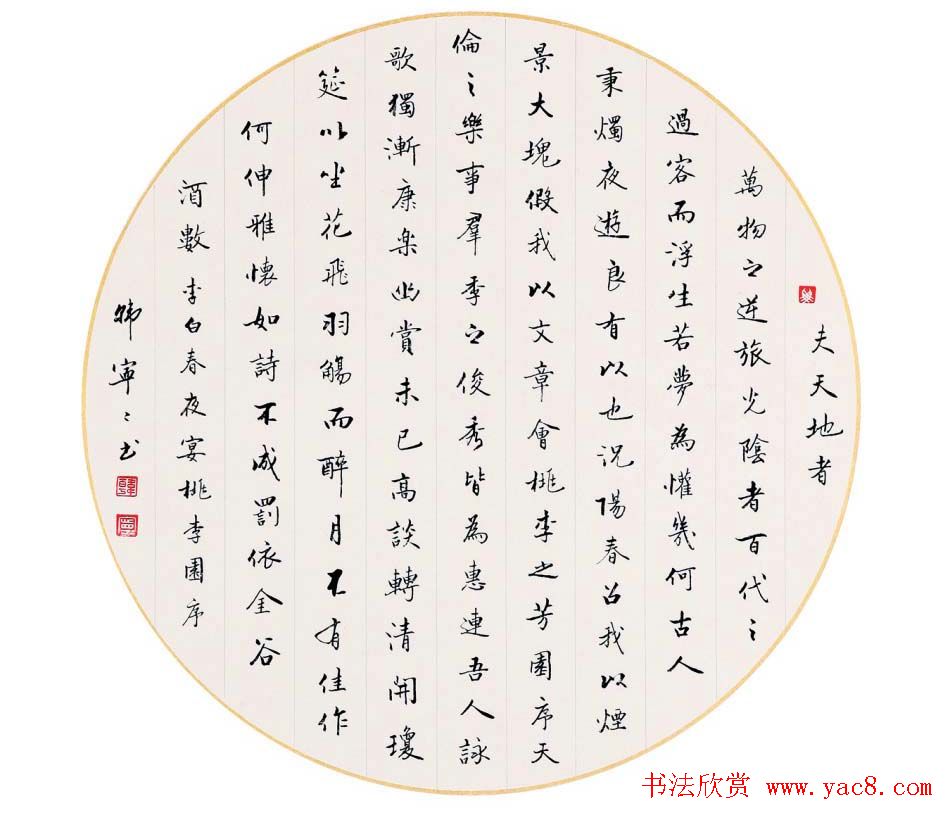 夫天地者
萬物之逆旅光陰者百代之
過客而浮生若夢為懽幾何古人
秉燭夜遊良有以也況陽春召我以煙
景大塊假我以文章會桃李之芳園序天
倫之樂事羣季之俊秀皆為惠連吾人詠
歌獨漸康樂幽賞未已高談轉清開瓊
筵以坐花飛羽觴而醉月不有佳作
何伸雅懷如詩不成罰依金谷
酒數 李白春夜宴桃李園序
韓寧寧書
书法欣赏 www.yac8.com